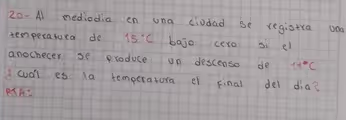 20- Al mediodia en una ciudad se registra una
temperatura de 15°C bajo cero si el
anochecer se produce un descenso de 11°C
¿cuál es la temperatura el final del dia?
RTA: